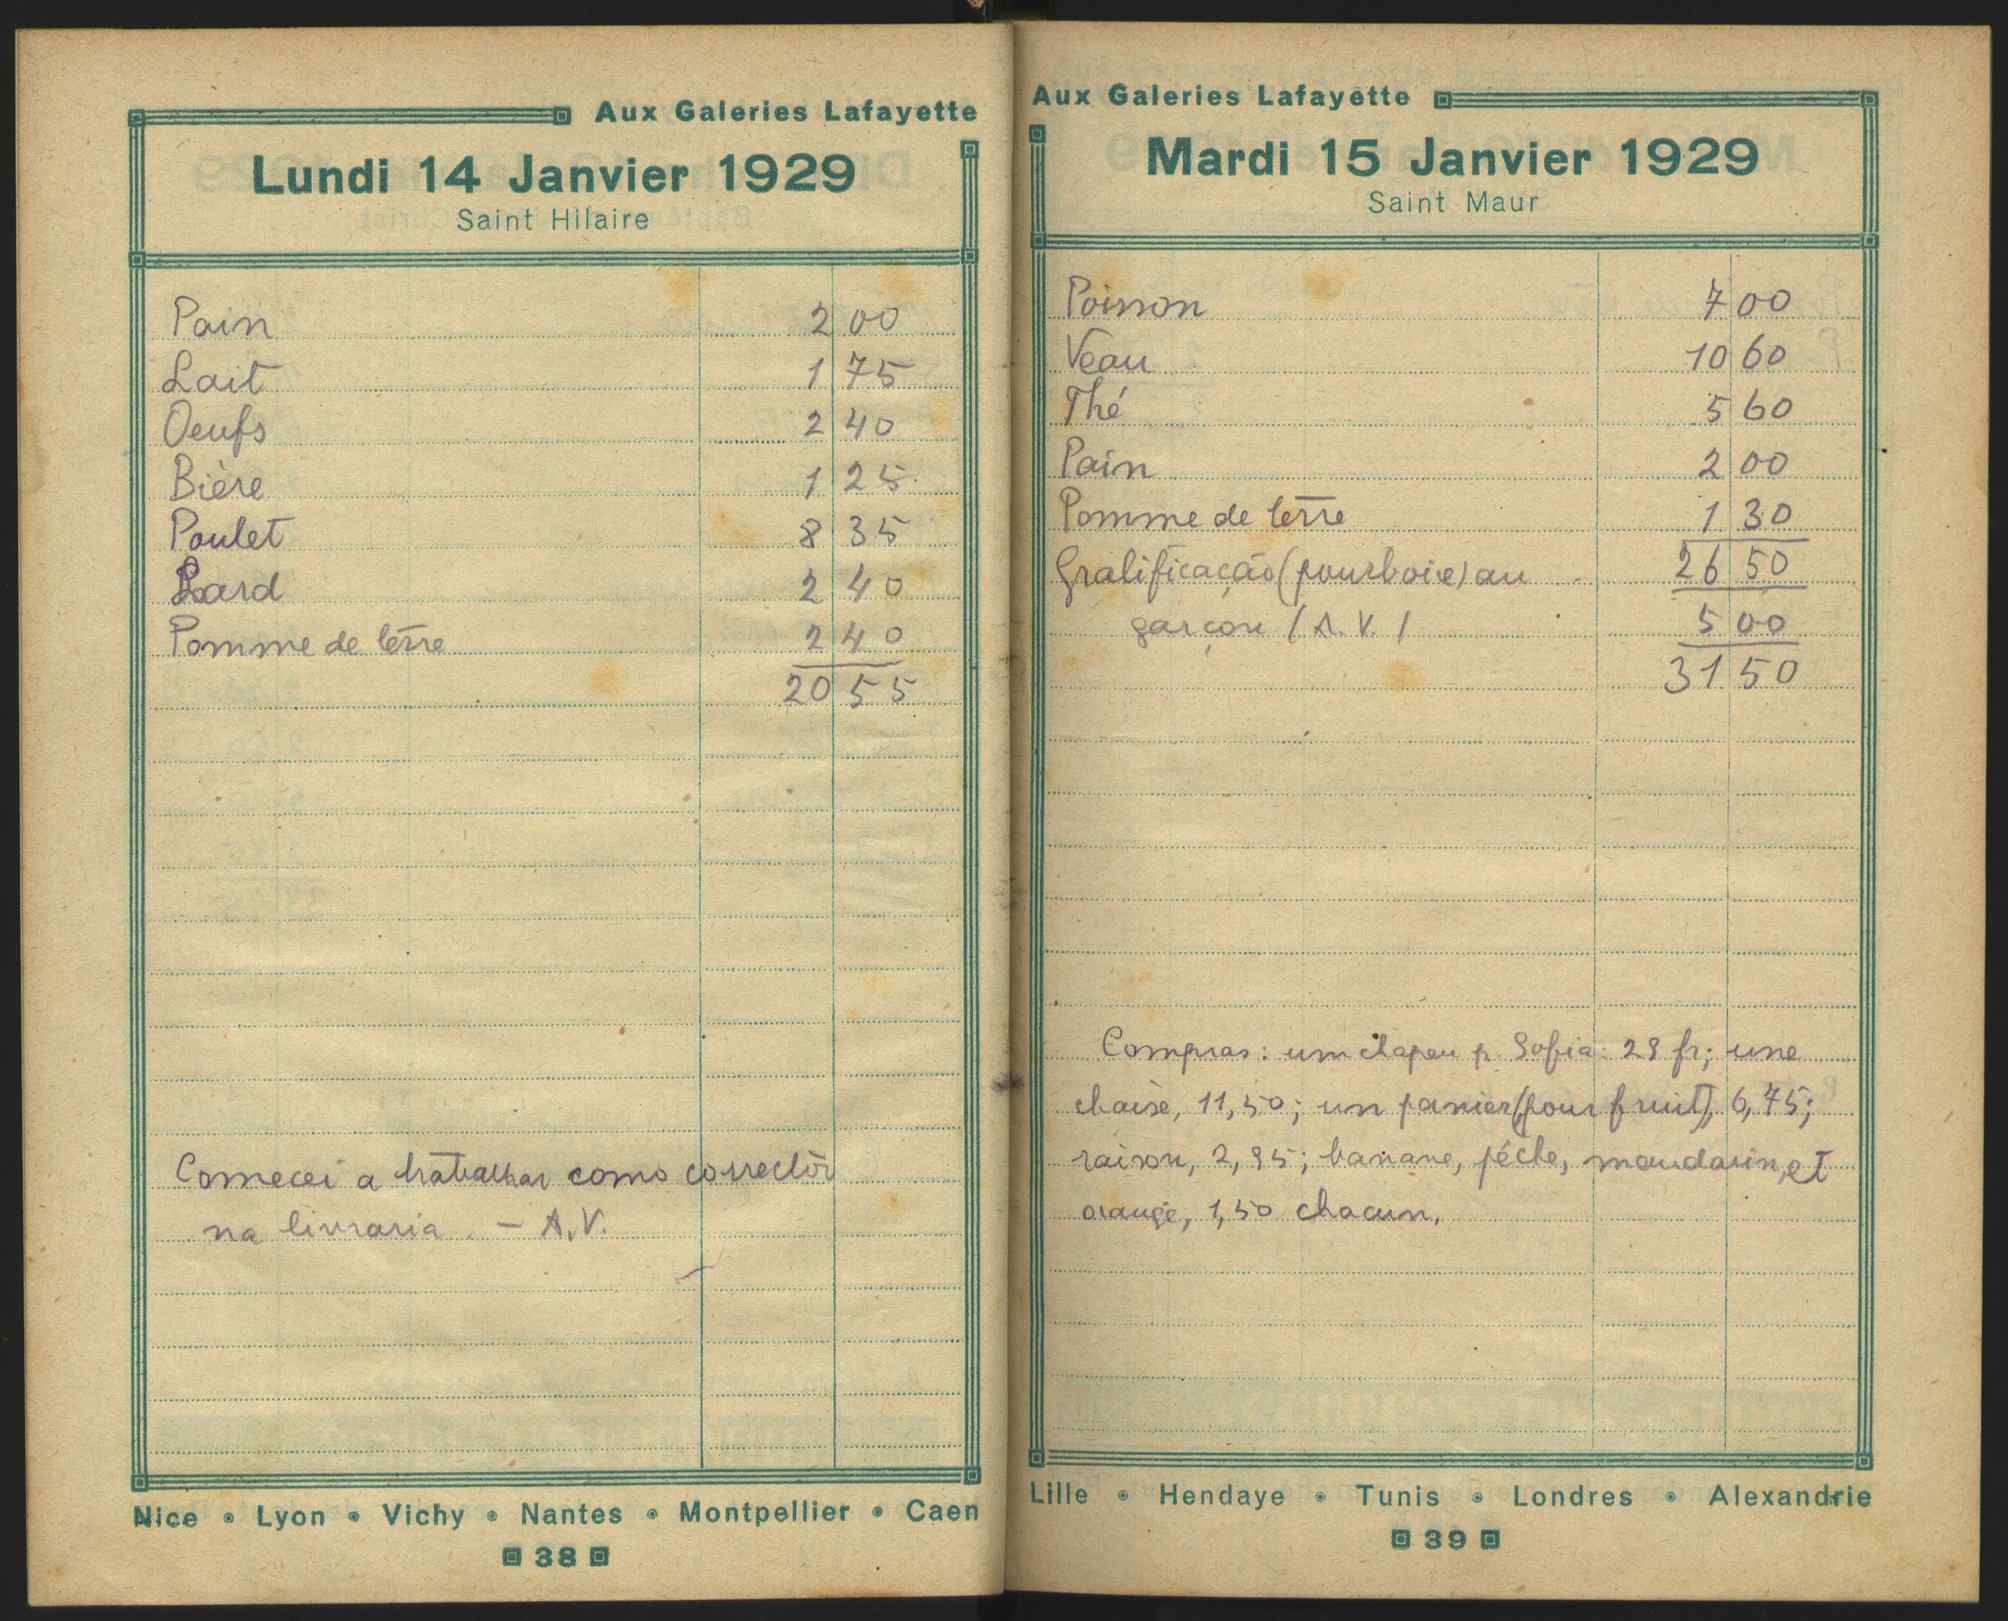 Aux Galeries Lafayette
Lundi 14 Janvier 1929
Saint Hilaire
Pain 2 00
Lait 1 75
Oeufs 2 40
Bière 1 25
Poulet 8 35
Lard 2 40
Pomme de terre 2 40
20 55
Comecei a trabalhar como corrector
na livraria. — A.V.
Nice • Lyon • Vichy • Nantes • Montpellier • Caen
38
Aux Galeries Lafayette
Mardi 15 Janvier 1929
Saint Maur
Poisson 7 00
Veau 10 60
Thé 5 60
Pain 2 00
Pomme de terre 1 30
Gratificação (pourboire) au 26 50
garçon (A.V.) 5 00
31 50
Compras: um chapeu p. Sofia: 29 fr; une
chaise, 11,50; un panier (pour fruit), 6,75;
raison, 2,95; banane, pêche, mandarin, et
orange, 1,50 chacun.
Lille • Hendaye • Tunis • Londres • Alexandrie
39